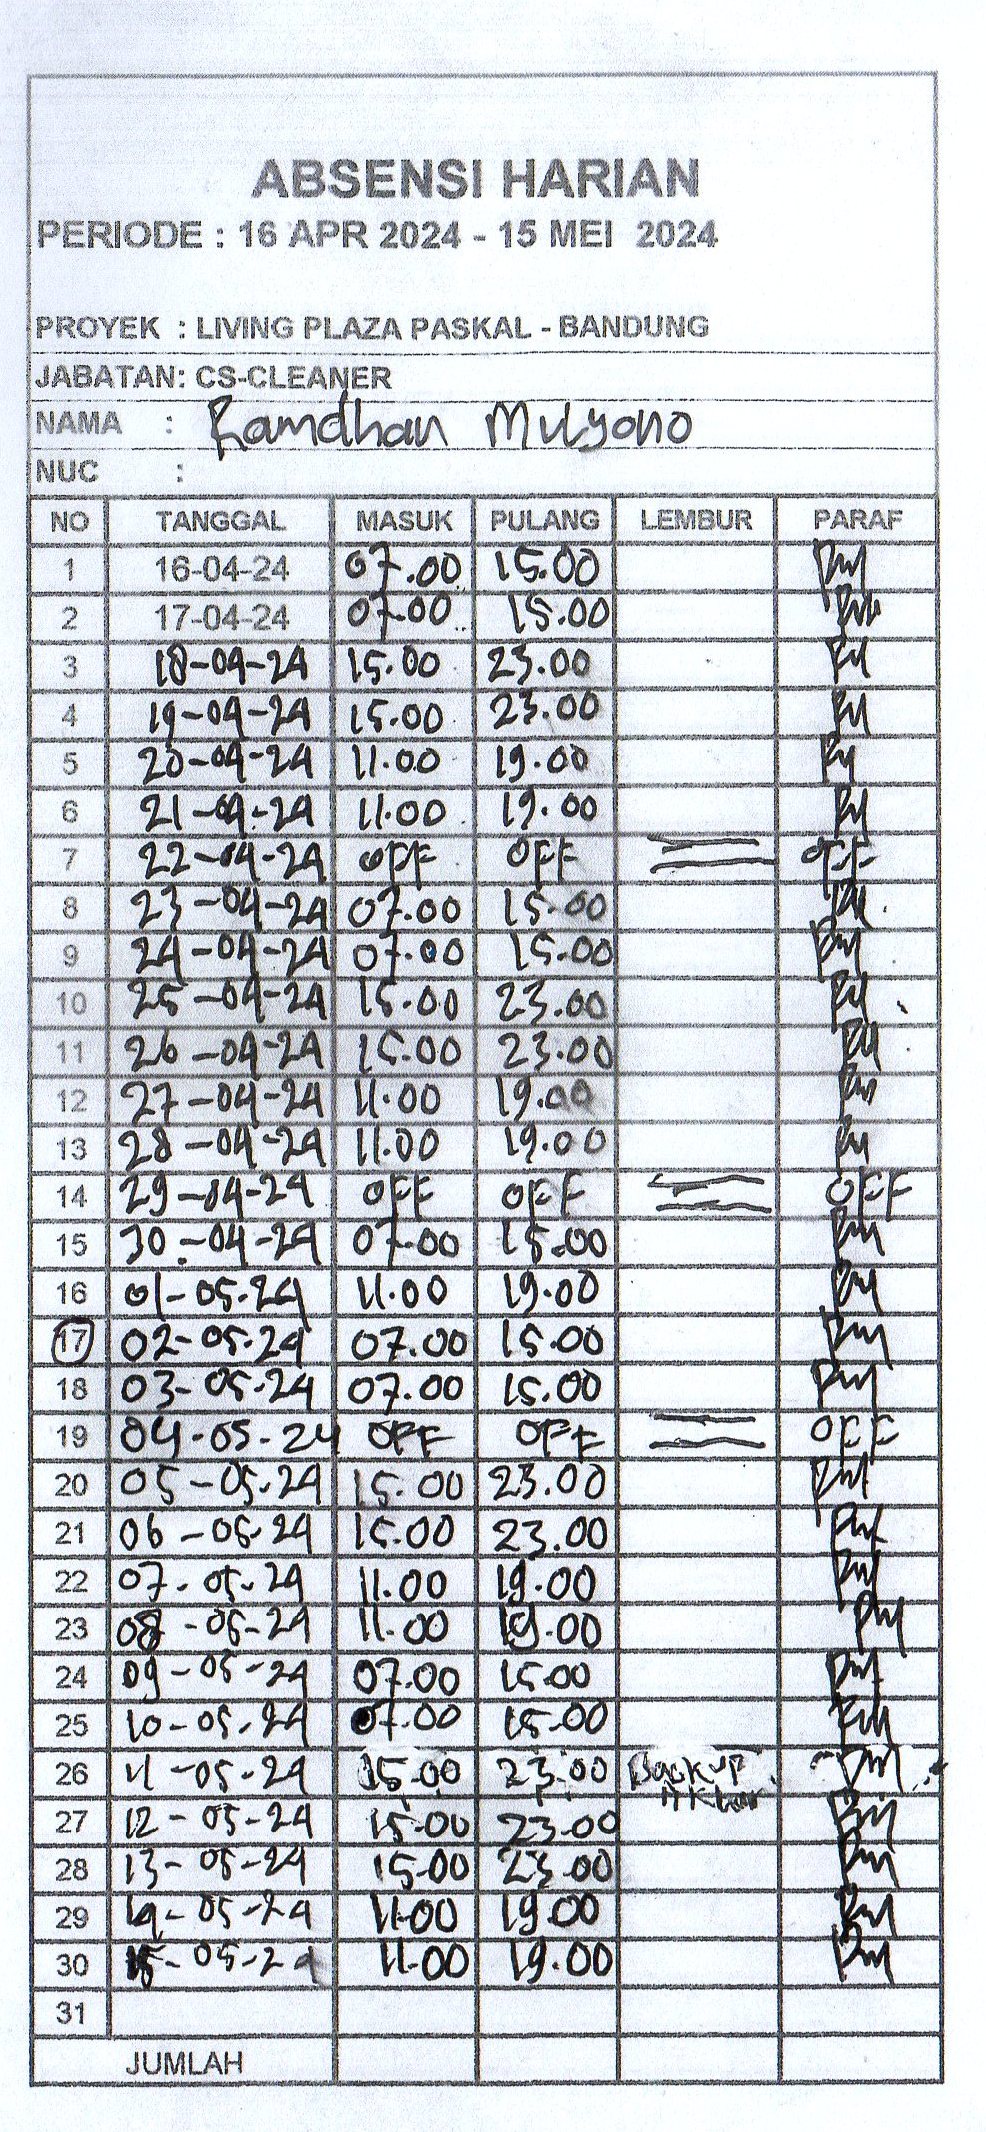 ABSENSI HARIAN
PERIODE : 16 APR 2024 - 15 MEI 2024
PROYEK : LIVING PLAZA PASKAL - BANDUNG
JABATAN: CS-CLEANER
NAMA : Ramdhan Mulyono
NUC :
NO TANGGAL MASUK PULANG LEMBUR PARAF
1 16-04-24 07.00 15.00
2 17-04-24 07.00 15.00
3 18-04-24 15.00 23.00
4 19-04-24 15.00 23.00
5 20-04-24 11.00 19.00
6 21-04-24 11.00 19.00
7 22-04-24 OFF OFF OFF
8 23-04-24 07.00 15.00
9 24-04-24 07.00 15.00
10 25-04-24 15.00 23.00
11 26-04-24 15.00 23.00
12 27-04-24 11.00 19.00
13 28-04-24 11.00 19.00
14 29-04-24 OFF OFF OFF
15 30-04-24 07.00 15.00
16 01-05-24 11.00 19.00
17 02-05-24 07.00 15.00
18 03-05-24 07.00 15.00
19 04-05-24 OFF OFF OFF
20 05-05-24 15.00 23.00
21 06-05-24 15.00 23.00
22 07-05-24 11.00 19.00
23 08-05-24 11.00 19.00
24 09-05-24 07.00 15.00
25 10-05-24 07.00 15.00
26 11-05-24 15.00 23.00 Backup
27 12-05-24 15.00 23.00
28 13-05-24 15.00 23.00
29 14-05-24 11.00 19.00
30 15-05-24 11.00 19.00
31
JUMLAH